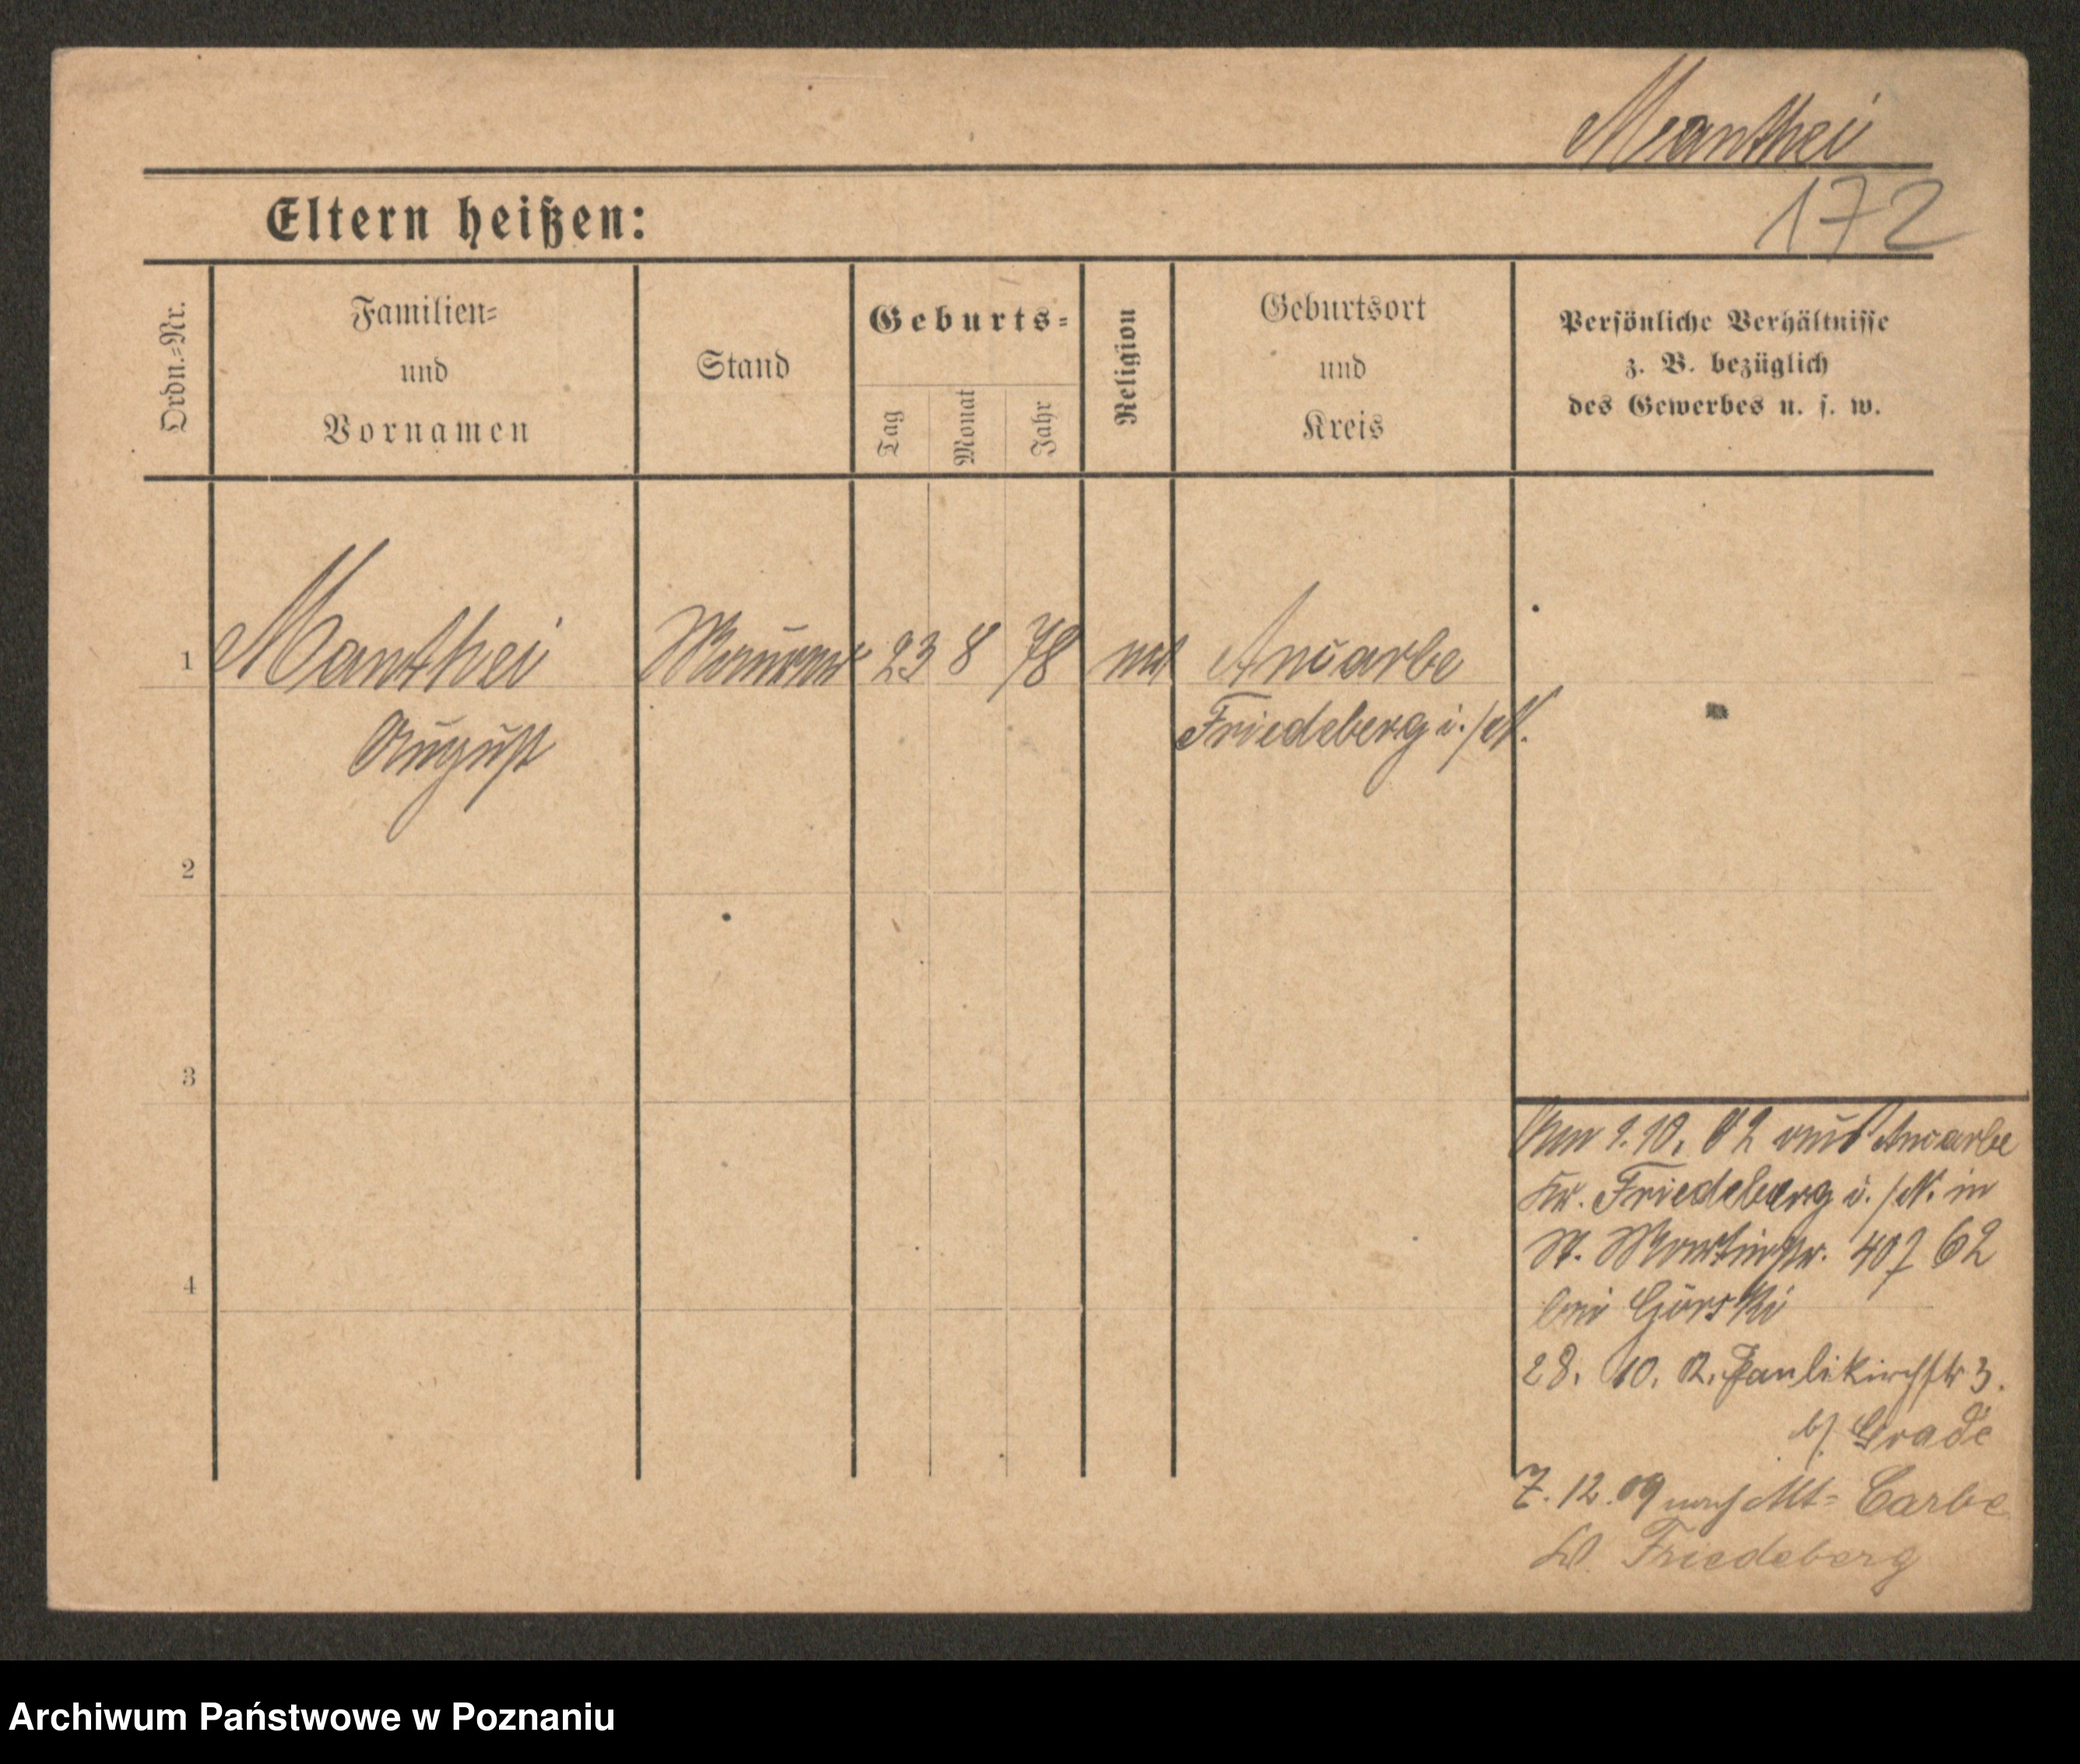 Manthei
172
Eltern heißen:
Ordn.=Nr.
Familien=
und
Vornamen
Stand
Geburts=
Tag
Monat
Jahr
Religion
Geburtsort
und
Kreis
Persönliche Verhältnisse
z. B. bezüglich
des Gewerbes u. s. w.
1 Manthei Maurer 23 8 78 Ancarbe
August Friedeberg i./N.
2
3
4
10. 02 aus Ancarbe
Kr. Friedeberg i./N. in
St. Martinstr. 62
bei Górski
28. 10. 02. Paulikirchstr 3.
b/ Grade
7. 12. 09 nach Alt= Carbe
Kr. Friedeberg
Archiwum Państwowe w Poznaniu